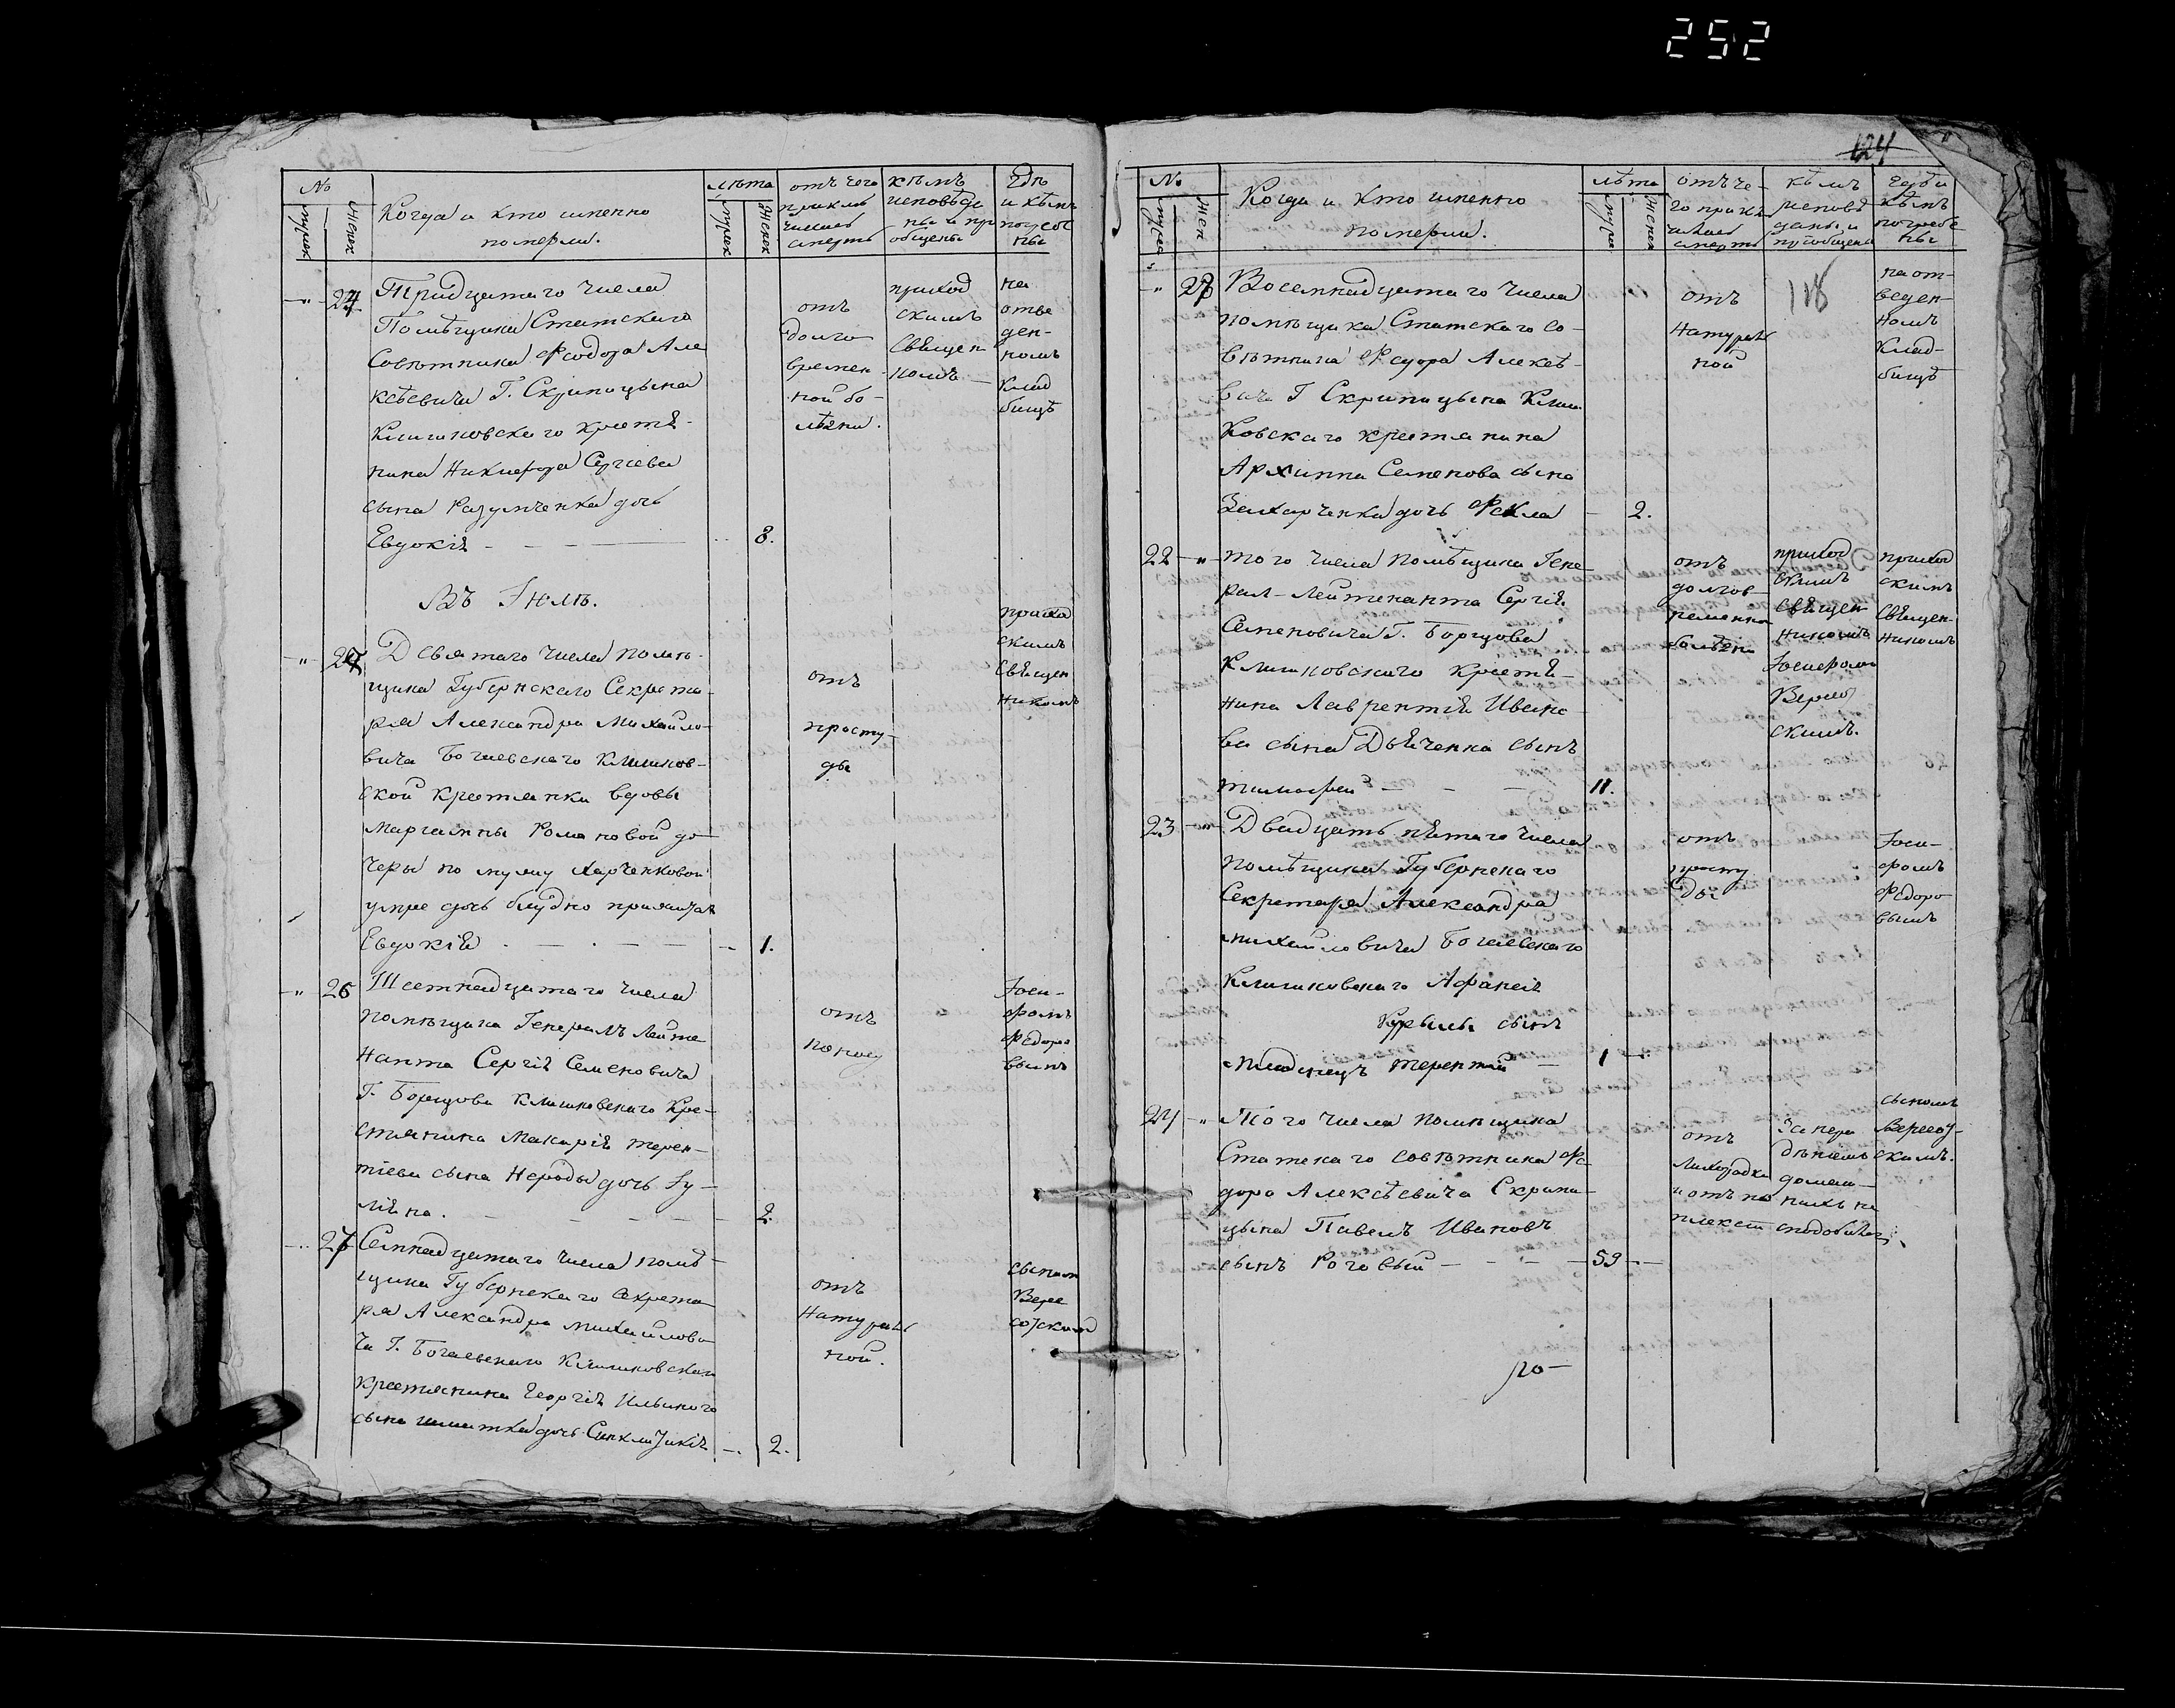 252
124
№
мужск
женск
Когда и кто имянно
померли.
лѣта
мужск
женск
отъ чего
приклю
чилась
смерть
кѣмъ
исповѣда
ны и прі
общены
Гдѣ
и кѣмъ
погребе
ны
24
Тридцатаго числа
Помѣщика Статскаго
Совѣтника Феодора Але
ксѣевича Г. Скрипицына
Клишковскаго крестя-
нина Никифора Сергіева
сына Разумченка дочь
Евдокія
8.
отъ
долго
времен
ной бо-
лѣзни.
приход
скимъ
Священ
на
отве
ден-
номъ
клад
бищѣ
Въ Іюлѣ.
Девятаго числа помѣ-
щика Губернскаго Секрета-
ря Александра Михайло-
вича Богаевскаго Клишков-
ской крестянки вдовы
Марѳины Романовой до-
чери по мужу Харченковой
умре дочь блудно прижитая
Евдокія
1.
отъ
просту-
ды
прихо
скимъ
Священ
никомъ
26
Шестнадцатаго числа
помѣщика Генералъ Лейте
нанта Сергія Семеновича
Г. Борщова Клишковскаго кре-
стянина Макарія Терен-
тіева сына Нероды дочь Іу-
ліяна.
2.
отъ
поносу
Іоси-
фомъ
Федоро
вымъ
27
Семнадцатаго числа помѣ-
щика Губернскаго Секрета
ря Александра Михайлови
ча Г. Богаевскаго Клишковскаго
крестянина Георгія Ильиного
сына дочь Синклитикія
2.
отъ
Натураль
ной.
Вере
соскимъ
№
муже
жен
Когда и кто имянно
померли.
лѣта
мужс
женск
отъ че-
го прикл
чилась
смерть
кѣмъ
исповѣ
даны и
пріобщены
гдѣ и
кѣмъ
погребе
ны
28
Восемнадцатаго числа
помѣщика Статскаго Со-
вѣтника Федора Алексѣ-
вича Г Скрипицына Клиш
ковскаго крестянина
Архиппа Семенова сына
Захарченка дочь Фекла
2.
отъ
Натураль
ной
118
на от-
веден-
номъ
клад-
бищѣ
22
того числа помѣщика Гене
рал-Лейтенанта Сергія
Семеновича Г. Борщова
Клишковскаго крестя-
нина Лаврентія Ивано
ва сына Дьяченка сынъ
тимофей
11.
отъ
долгов
ременна
болѣзни
приход
скимъ
священ
никомъ
Іосифомъ
Верес
скимъ.
приход
скимъ
Священ-
никомъ
23
Двадцать пятаго числа
помѣщика Губернскаго
Секретаря Александра
михайловича Богаевскаго
Клишковскаго Афанасія
Курыла сынъ
младенецъ терентій
1
отъ
просту
ды
Іоси-
фомъ
Федоро
вымъ
24
Того числа помѣщика
Статскаго Совѣтника Фе
дора Алексѣевича Скрипи-
цына Павелъ Ивановъ
сынъ Роговый
59
отъ
Лихорадки
За нера
дѣніемъ
домаш-
нихъ не
сподобился
скимъ.